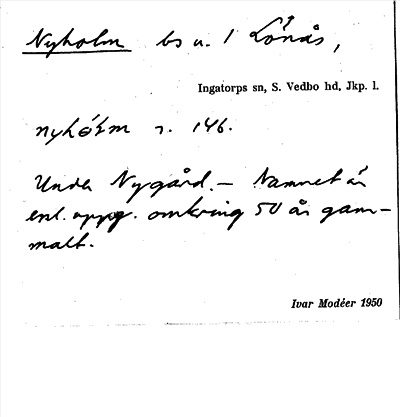 Nyholm bs u. 1 Lönås,
Ingatorps sn, S. Vedbo hd, Jkp. l.
nyhólm r. 146.
Under Nygård. — Namnet är
enl. uppg. omkring 50 år gam-
malt.
Ivar Modéer 1950